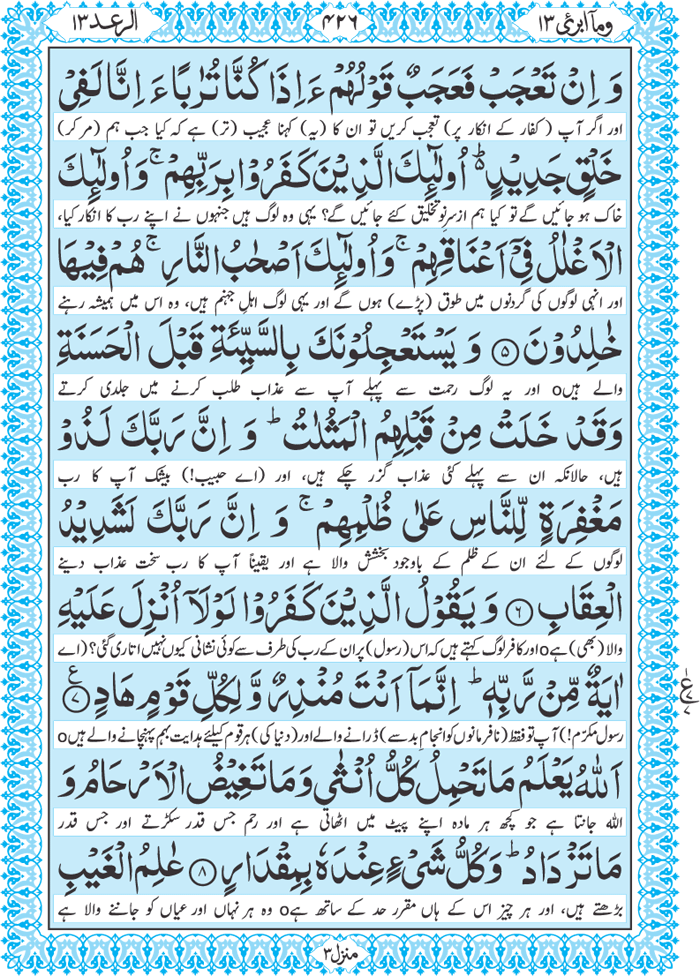 وماۤ ابرئ ١٣
٤٢٦
الرعد ١٣
وَ اِنْ تَعْجَبْ فَعَجَبٌ قَوْلُهُمْ ءَاِذَا كُنَّا تُرٰبًا ءَاِنَّا لَفِیْ
اور اگر آپ (کفار کے انکار پر) تعجب کریں تو ان کا (یہ) کہنا عجیب (تر) ہے کہ کیا جب ہم (مر کر)
خَلْقٍ جَدِیْدٍ ؕ۬ اُولٰٓئِكَ الَّذِیْنَ كَفَرُوْا بِرَبِّهِمْ ۚ وَ اُولٰٓئِكَ
خاک ہو جائیں گے تو کیا ہم ازسرِنو تخلیق کئے جائیں گے؟ یہی وہ لوگ ہیں جنہوں نے اپنے رب کا انکار کیا،
الْاَغْلٰلُ فِیْۤ اَعْنَاقِهِمْ ۚ وَ اُولٰٓئِكَ اَصْحٰبُ النَّارِ ۚ هُمْ فِیْهَا
اور انہی لوگوں کی گردنوں میں طوق (پڑے) ہوں گے اور یہی لوگ اہلِ جہنم ہیں، وہ اس میں ہمیشہ رہنے
خٰلِدُوْنَ ۝۵ وَ یَسْتَعْجِلُوْنَكَ بِالسَّیِّئَةِ قَبْلَ الْحَسَنَةِ
والے ہیںo اور یہ لوگ رحمت سے پہلے آپ سے عذاب طلب کرنے میں جلدی کرتے
وَ قَدْ خَلَتْ مِنْ قَبْلِهِمُ الْمَثُلٰتُ ؕ وَ اِنَّ رَبَّكَ لَذُوْ
ہیں، حالانکہ ان سے پہلے کئی عذاب گزر چکے ہیں، اور (اے حبیب!) بیشک آپ کا رب
مَغْفِرَةٍ لِّلنَّاسِ عَلٰی ظُلْمِهِمْ ۚ وَ اِنَّ رَبَّكَ لَشَدِیْدُ
لوگوں کے لئے ان کے ظلم کے باوجود بخشش والا ہے اور یقیناً آپ کا رب سخت عذاب دینے
الْعِقَابِ ۝۶ وَ یَقُوْلُ الَّذِیْنَ كَفَرُوْا لَوْلَاۤ اُنْزِلَ عَلَیْهِ
والا (بھی) ہےo اور کافر لوگ کہتے ہیں کہ اس (رسول) پر ان کے رب کی طرف سے کوئی نشانی کیوں نہیں اتاری گئی؟ (اے
اٰیَةٌ مِّنْ رَّبِّهٖ ؕ اِنَّمَاۤ اَنْتَ مُنْذِرٌ وَّ لِكُلِّ قَوْمٍ هَادٍ ۝۷ ع
رسولِ مکرّم!) آپ تو فقط (نافرمانوں کو انجامِ بد سے) ڈرانے والے اور (دنیا کی) ہر قوم کیلئے ہدایت بہم پہنچانے والے ہیںo
اَللّٰهُ یَعْلَمُ مَا تَحْمِلُ كُلُّ اُنْثٰی وَ مَا تَغِیْضُ الْاَرْحَامُ وَ
اللہ جانتا ہے جو کچھ ہر مادہ اپنے پیٹ میں اٹھاتی ہے اور رحم جس قدر سکڑتے اور جس قدر
مَا تَزْدَادُ ؕ وَ كُلُّ شَیْءٍ عِنْدَهٗ بِمِقْدَارٍ ۝۸ عٰلِمُ الْغَیْبِ
بڑھتے ہیں، اور ہر چیز اس کے ہاں مقرر حد کے ساتھ ہےo وہ ہر نہاں اور عیاں کو جاننے والا ہے
منزل ٣